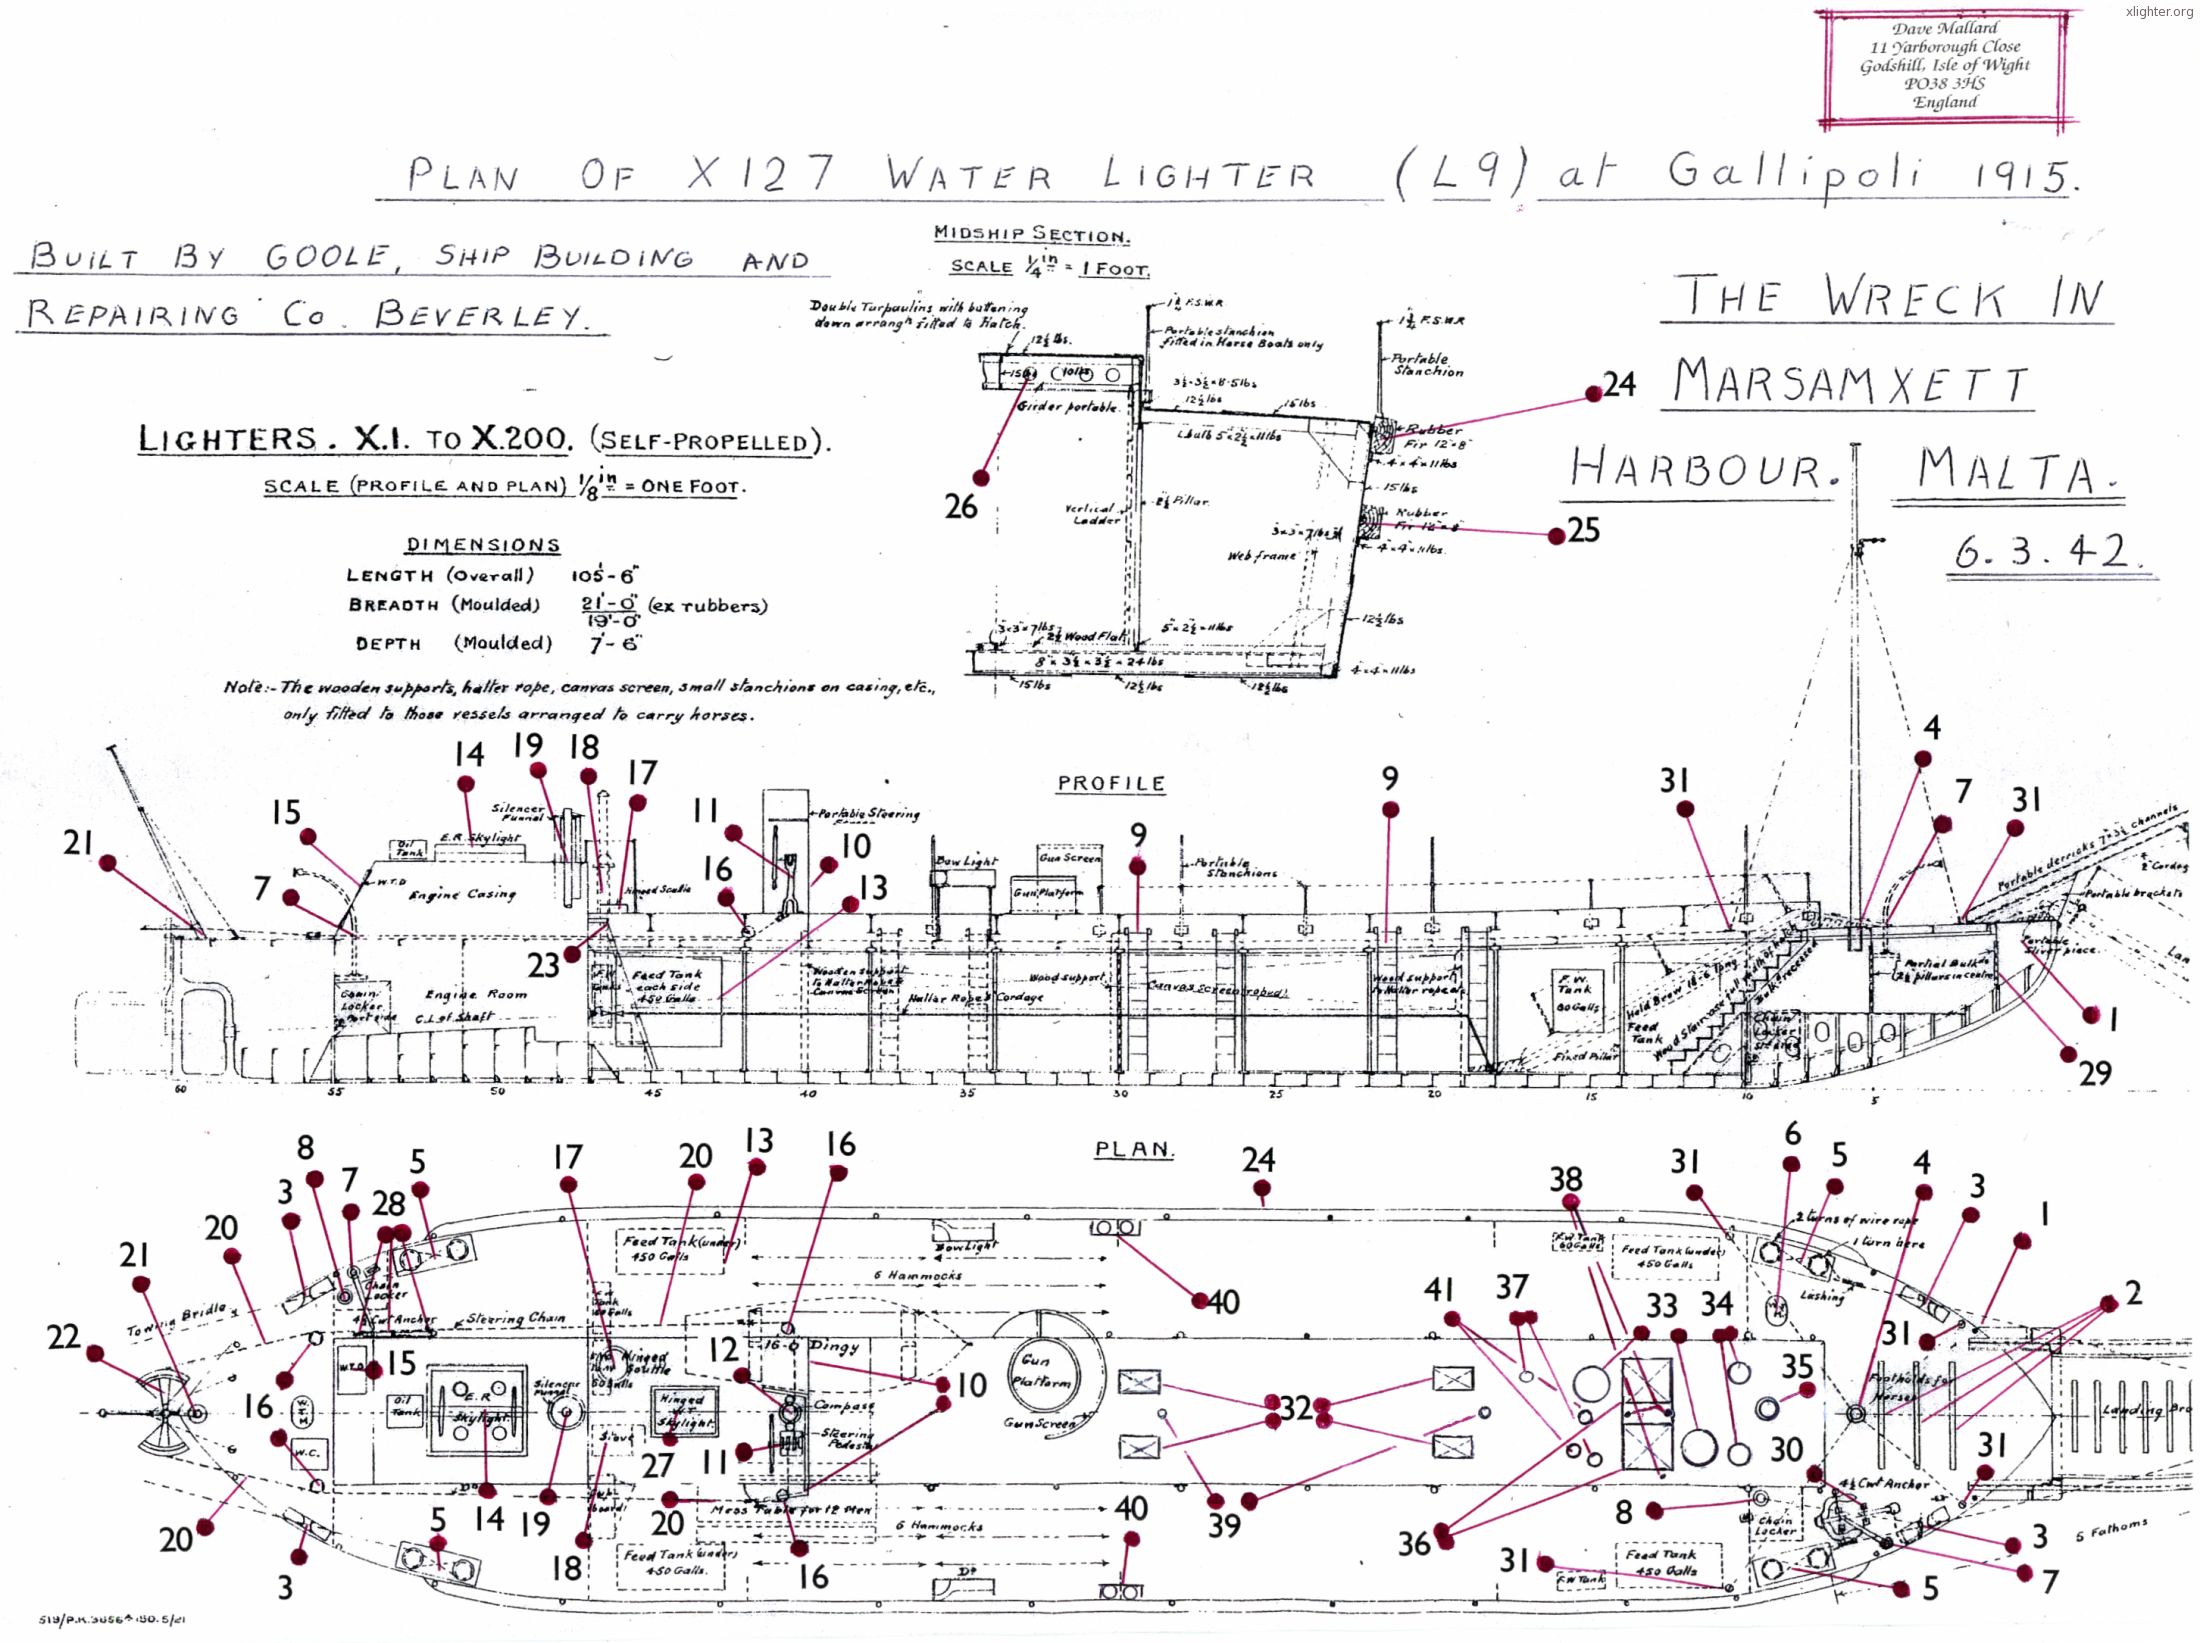 xlighter.org
Dave Mallard
11 Yarborough Close
Godshill, Isle of Wight
PO38 3HS
England
PLAN OF X127 WATER LIGHTER (L9) at Gallipoli 1915.
BUILT BY GOOLE, SHIP BUILDING AND
REPAIRING Co. BEVERLEY.
MIDSHIP SECTION.
SCALE 1/4 in = 1 FOOT.
THE WRECK IN
MARSAMXETT
HARBOUR. MALTA.
6.3.42.
Double Tarpaulins with battening
down arrangt fitted to Hatch.
12½ lbs.
1¼ F.S.W.R
Portable stanchion
fitted in Horse Boats only
1¼ F.S.W.R
Portable
Stanchion
15lbs
10lbs
Girder portable.
12½ lbs
15lbs
Rubber
Fir 12"×8"
4"×4"×11lbs
15lbs
24
26
Vertical
Ladder
2½ Pillar.
Rubber
Fir 12"×8"
4"×4"×11lbs.
25
3"×3"×7lbs
Web frame
12½ lbs
3"×3"×7lbs
2½ Wood Flat
5"×2½"×11lbs
8"×3½"×3½"×24lbs
4"×4"×11lbs
15lbs
12½ lbs
12½ lbs
LIGHTERS. X.1. TO X.200. (SELF-PROPELLED).
SCALE (PROFILE AND PLAN) 1/8 in = ONE FOOT.
DIMENSIONS
LENGTH (Overall) 105'-6"
BREADTH (Moulded) 21'-0" (ex rubbers)
19'-0"
DEPTH (Moulded) 7'-6"
Note:- The wooden supports, halter rope, canvas screen, small stanchions on casing, etc.,
only fitted to those vessels arranged to carry horses.
PROFILE
21
15
7
14
19
18
17
11
16
10
13
23
9
9
31
4
7
31
1
29
Silencer
Funnel
Oil
Tank
E.R. Skylight
W.T.D
Engine Casing
Hinged Scuttle
Portable Steering
Bow Light
Gun Screen
Gun Platform
Portable
Stanchions
Portable derricks 7"×3½ channels
2" Cordag
Portable brackets
Chain
Locker
Port side
Engine Room
C.L. of Shaft
Feed Tank
each side
450 Galls
Wooden support
to Halter Rope &
Canvas Screen
Halter Rope 2" Cordage
Wood support
Canvas screen (roped)
Wood support
to Halter rope
F.W.
Tank
80 Galls
Feed
Tank
Fixed Pillar
Hold Brow 16'-6" long
Chain
Locker
Partial Bulkd
2½ pillars in centre
Portable
60
55
50
45
40
35
30
25
20
15
10
5
PLAN.
8
3
7
28
5
17
20
13
16
24
38
31
6
5
4
3
1
21
20
22
16
20
3
15
5
14
19
18
27
20
12
11
16
10
40
32
39
40
41
37
33
34
35
36
31
30
8
31
2
31
3
7
5
Towing Bridle
Chain
Locker
4½ Cwt Anchor
Steering Chain
W.T.D
Oil
Tank
E.R.
Skylight
Silencer
Funnel
W.C.
Feed Tank (under)
450 Galls
Hinged
Scuttle
Stove
Hinged
Skylight
16'-0 Dingy
Compass
Steering
Pedestal
Mess Table for 12 Men
6 Hammocks
6 Hammocks
Feed Tank (under)
450 Galls.
Bow Light
Do
Gun
Platform
Gun Screen
F.W. Tank
80 Galls
Feed Tank (under)
450 Galls
2 turns of wire rope
1 turn here
Lashing
Footholds for
Horses
Landing Bro
4½ Cwt Anchor
Chain
Locker
F.W Tank
Feed Tank
450 Galls
5 Fathoms